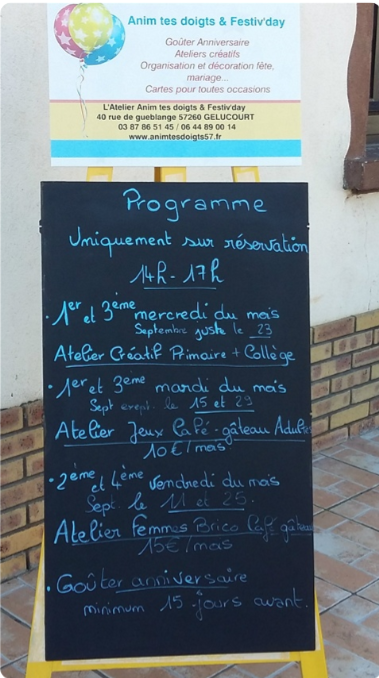 Anim tes doigts & Festiv'day
Goûter Anniversaire
Ateliers créatifs
Organisation et décoration fête,
mariage...
Cartes pour toutes occasions
L'Atelier Anim tes doigts & Festiv'day
40 rue de gueblange 57260 GELUCOURT
03 87 86 51 45 / 06 44 89 00 14
www.animtesdoigts57.fr
Programme
Uniquement sur réservation
14h - 17h
• 1er et 3ème mercredi du mois
Septembre juste le 23
Atelier Créatif Primaire + Collège
• 1er et 3ème mardi du mois
Sept le 15 et 29
Atelier Jeux Café - gâteau Adulte
10€/mois
• 2ème et 4ème vendredi du mois
Sept. le 11 et 25.
Atelier femmes Brico Café gâteau
15€/mois
• Goûter anniversaire
minimum 15 jours avant.